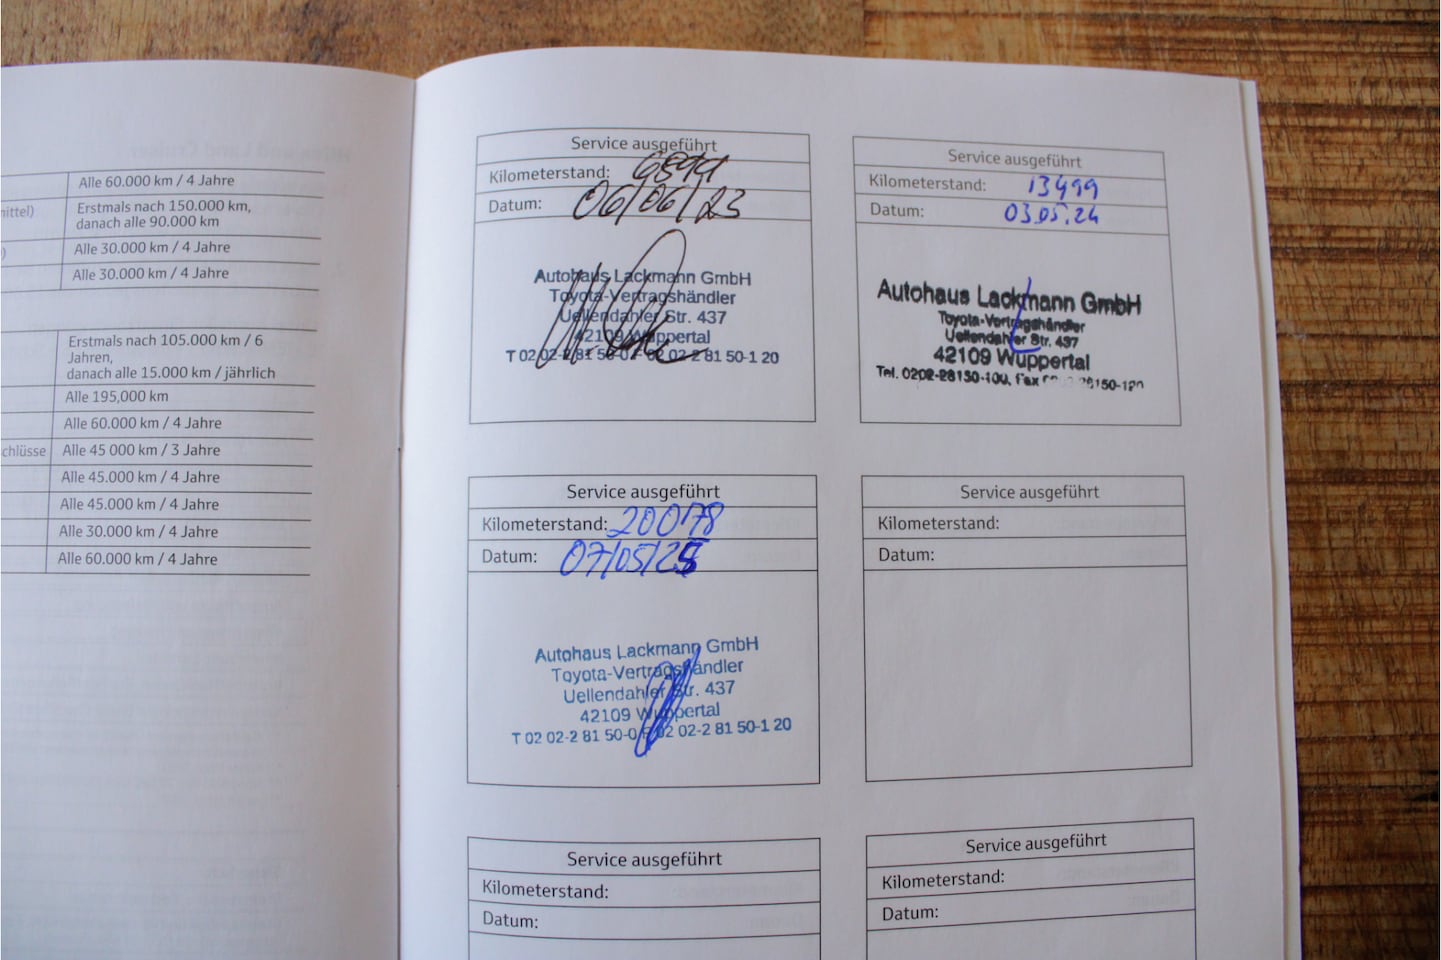 Alle 60.000 km / 4 Jahre
mittel)
Erstmals nach 150.000 km,
danach alle 90.000 km
)
Alle 30.000 km / 4 Jahre
Alle 30.000 km / 4 Jahre
Erstmals nach 105.000 km / 6
Jahren,
danach alle 15.000 km / jährlich
Alle 195,000 km
Alle 60.000 km / 4 Jahre
chlüsse
Alle 45 000 km / 3 Jahre
Alle 45.000 km / 4 Jahre
Alle 45.000 km / 4 Jahre
Alle 30.000 km / 4 Jahre
Alle 60.000 km / 4 Jahre
Service ausgeführt
Kilometerstand: 6899
Datum: 06/06/23
Autohaus Lackmann GmbH
Toyota-Vertragshändler
Uellendahler Str. 437
42109 Wuppertal
T 02 02-2 81 50-0 F 02 02-2 81 50-1 20
Service ausgeführt
Kilometerstand: 13499
Datum: 03.05.24
Autohaus Lackmann GmbH
Toyota-Vertragshändler
Uellendahler Str. 437
42109 Wuppertal
Tel. 0202-28150-100, Fax 0202-28150-120
Service ausgeführt
Kilometerstand: 20078
Datum: 07/05/25
Autohaus Lackmann GmbH
Toyota-Vertragshändler
Uellendahler Str. 437
42109 Wuppertal
T 02 02-2 81 50-0 F 02 02-2 81 50-1 20
Service ausgeführt
Kilometerstand:
Datum:
Service ausgeführt
Kilometerstand:
Datum:
Service ausgeführt
Kilometerstand:
Datum: